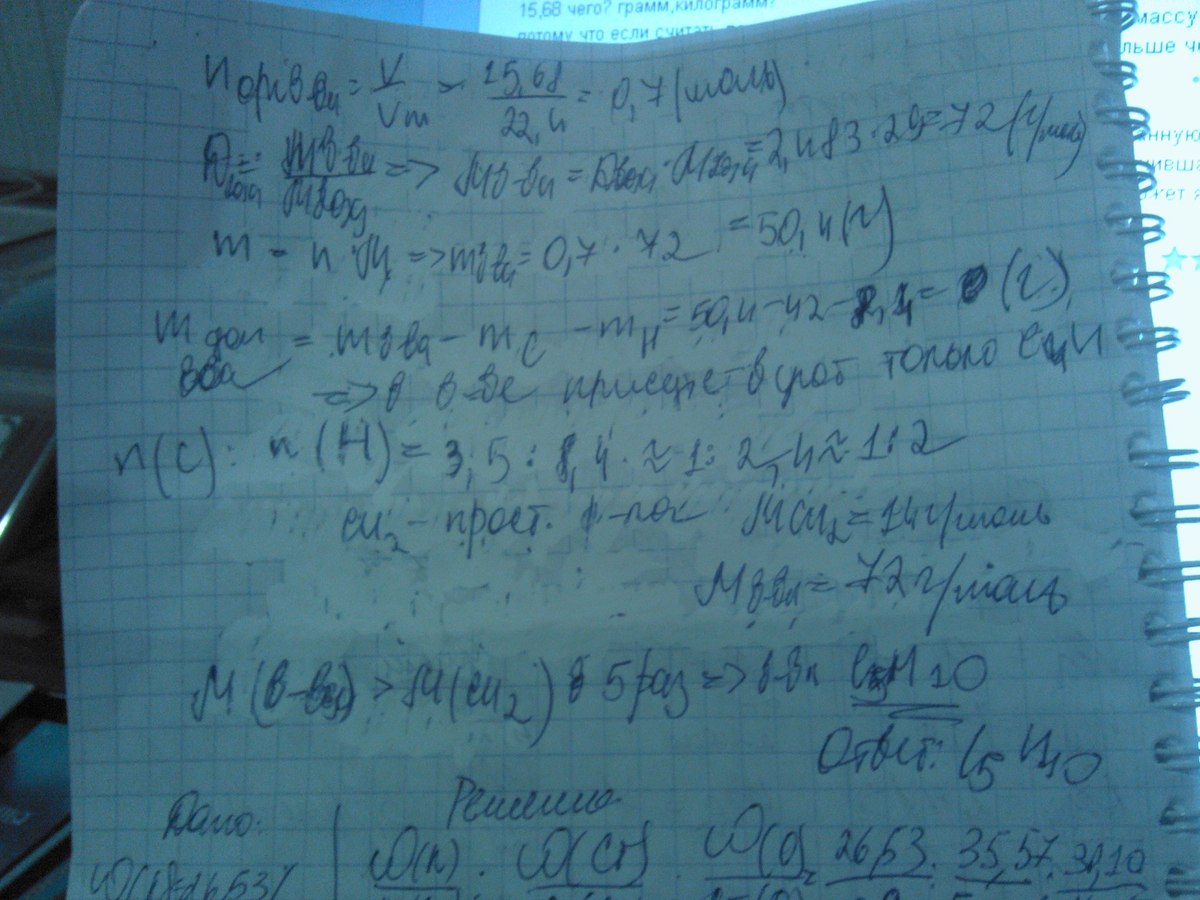 15,68 чего? грамм,килограмм?
потому что если считать
массу
льше че
анную
ивша
жет я
n орг.в-ва = V/Vm = 15,68/22,4 = 0,7 (моль)
Dвозд = Mв-ва/Mвозд => Mв-ва = Dвозд · Mвозд = 2,483 · 29 = 72 (г/моль)
m = n · M => mв-ва = 0,7 · 72 = 50,4 (г)
m доп в-ва = mв-ва - mC - mH = 50,4 - 42 - 8,4 = 0 (г)
=> в в-ве присутствуют только C и H
n(C) : n(H) = 3,5 : 8,4 ≈ 1 : 2,4 ≈ 1:2
CH2 - прост. ф-ла MCH2 = 14 г/моль
Mв-ва = 72 г/моль
M(в-ва) > M(CH2) в 5 раз => в-ва C5H10
Ответ: C5H10
Дано: Решение
ω(K)=26,53% ω(K) : ω(Cr) : ω(O) = 26,53 : 35,37 : 38,10